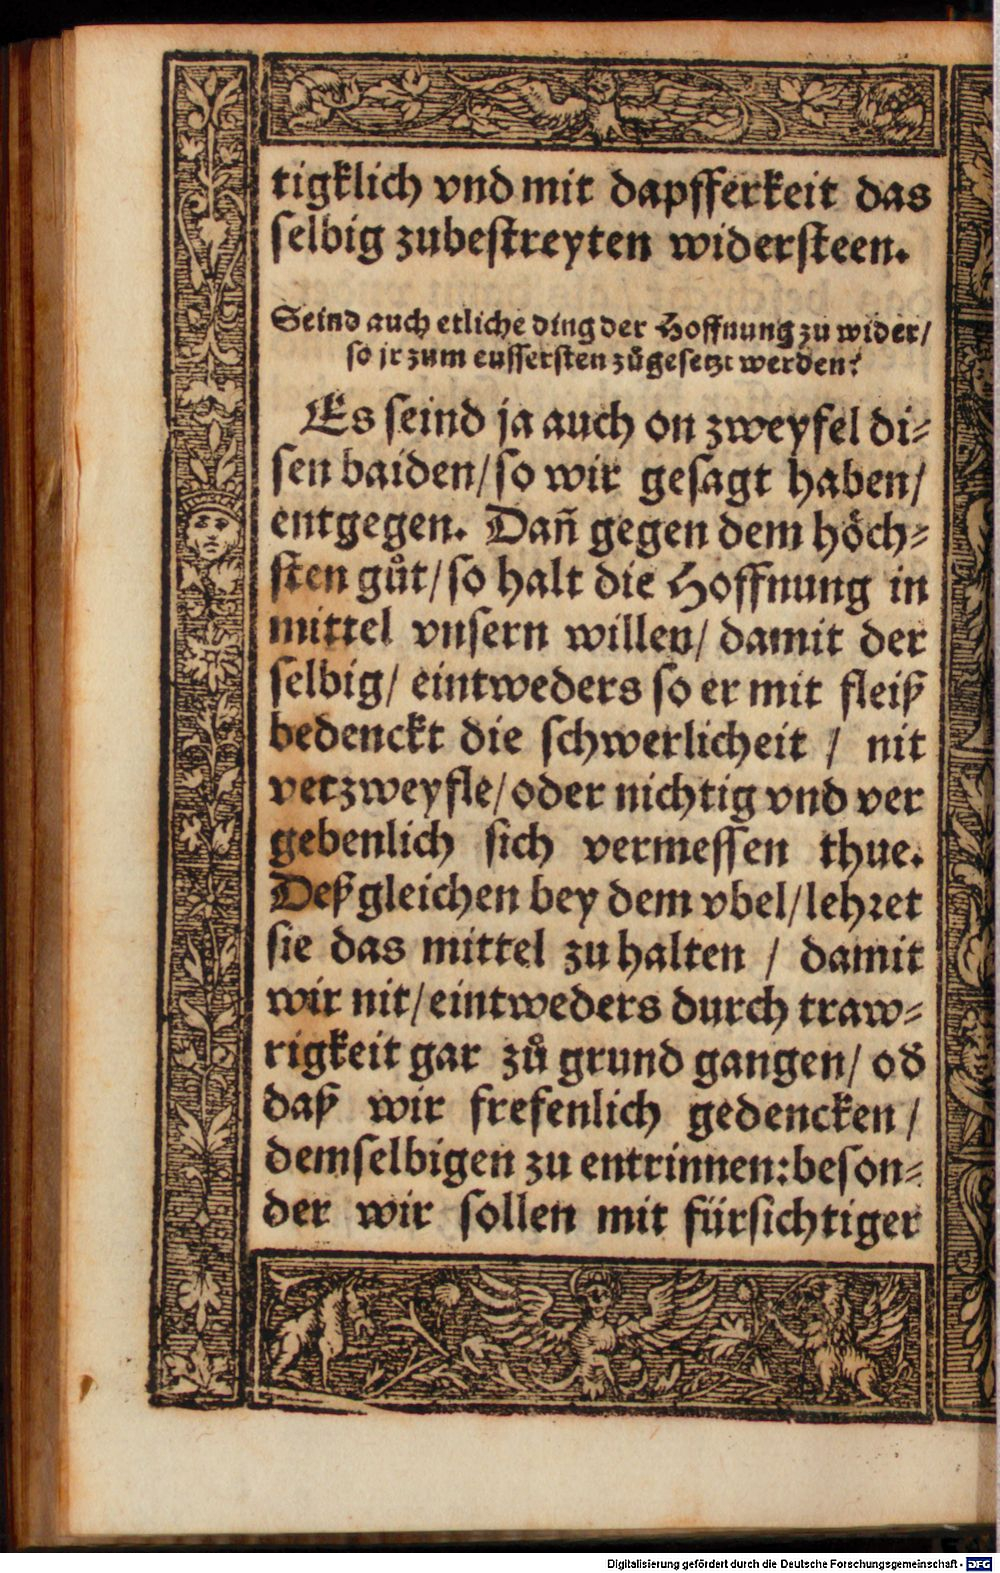 tigklich vnd mit dapfferkeit das
selbig zubestreyten widersteen.
Seind auch etliche ding der Hoffnung zu wider/
so jr zum eussersten zůgesetzt werden?
Es seind ja auch on zweyfel di-
sen baiden/ so wir gesagt haben/
entgegen. Dañ gegen dem höch-
sten gůt/ so halt die Hoffnung in
mittel vnsern willen/ damit der
selbig/ eintweders so er mit fleiß
bedenckt die schwerlicheit / nit
verzweyfle/ oder nichtig vnd ver
gebenlich sich vermessen thue.
Deßgleichen bey dem vbel/ lehret
sie das mittel zu halten / damit
wir nit/ eintweders durch traw-
rigkeit gar zů grund gangen/ od̃
daß wir frefenlich gedencken /
demselbigen zu entrinnen: beson-
der wir sollen mit fürsichtiger
Digitalisierung gefördert durch die Deutsche Forschungsgemeinschaft - DFG